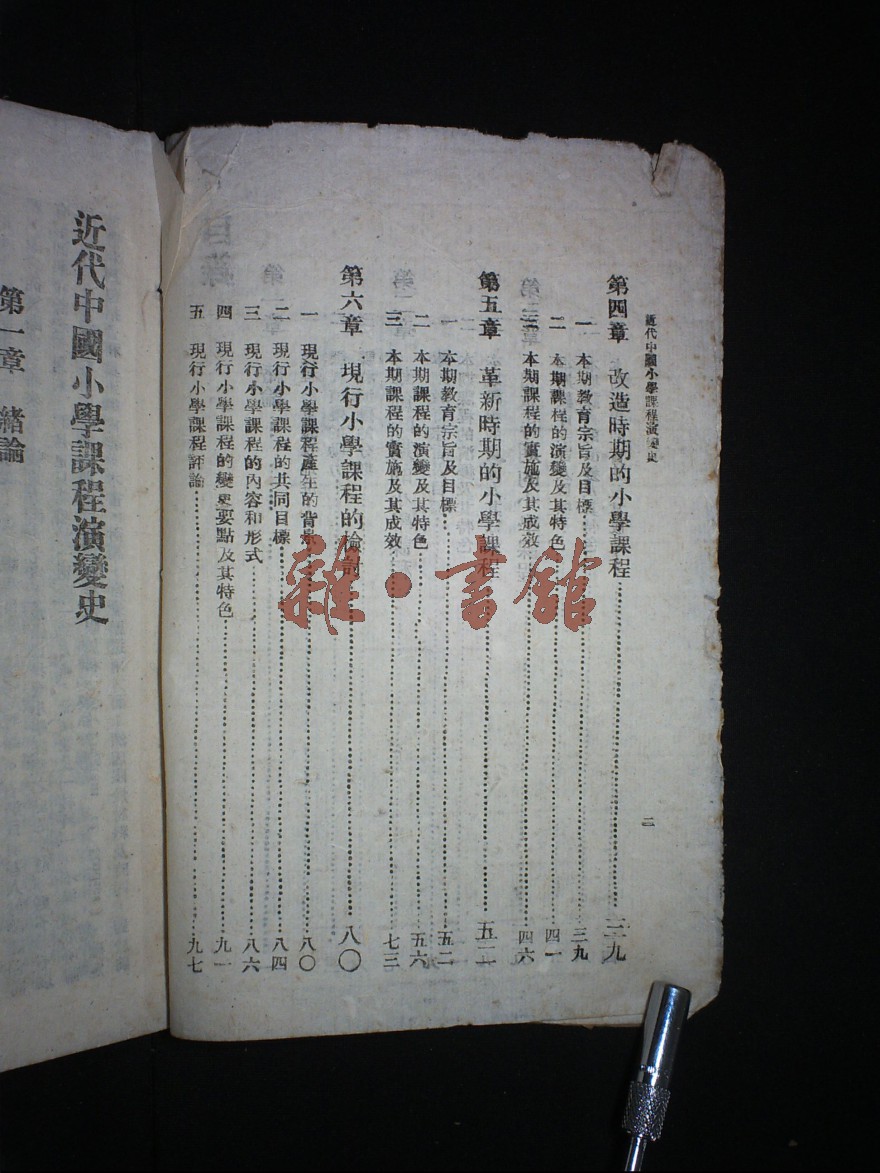 近代中國小學課程演變史
二
第四章 改造時期的小學課程 三九
一 本期教育宗旨及目標 三九
二 本期課程的演變及其特色 四一
三 本期課程的實施及其成效 四六
第五章 革新時期的小學課程 五二
一 本期教育宗旨及目標 五二
二 本期課程的演變及其特色 五六
三 本期課程的實施及其成效 七三
第六章 現行小學課程的檢討 八〇
一 現行小學課程產生的背景 八〇
二 現行小學課程的共同目標 八四
三 現行小學課程的內容和形式 八六
四 現行小學課程的變更要點及其特色 九一
五 現行小學課程評論 九七
近代中國小學課程演變史
第一章 緒論
雜·書館